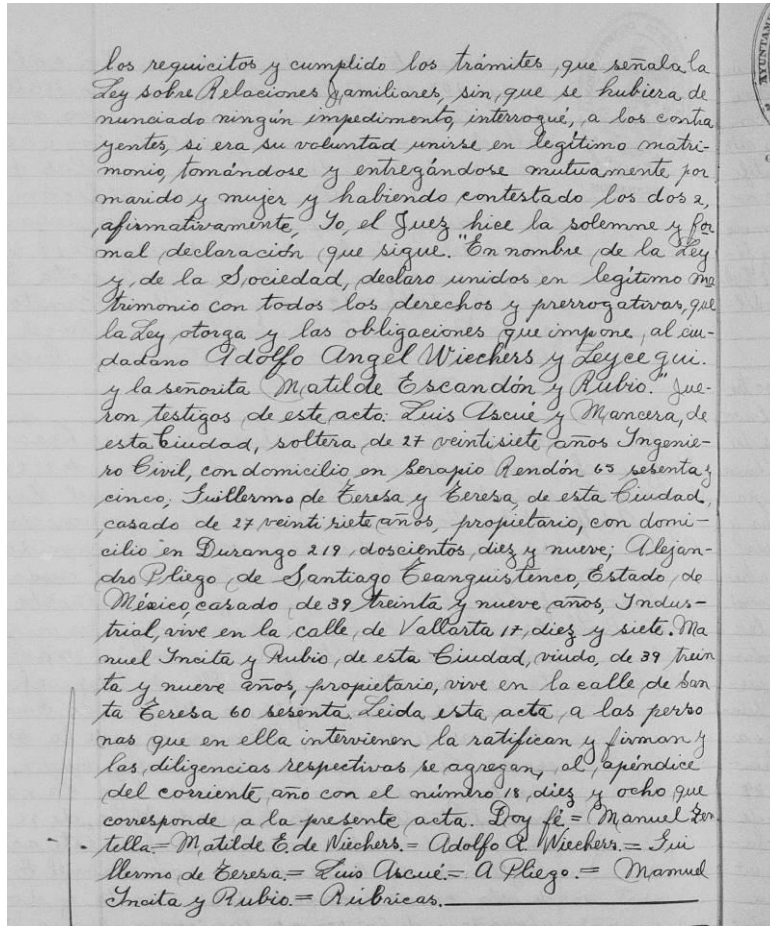 los requicitos y cumplido los trámites, que señala la
Ley sobre Relaciones Familiares, sin, que se hubiera de
nunciado ningún impedimento, interrogué, a los contra
yentes, si era su voluntad unirse en legítimo matri-
monio, tomándose y entregándose mutuamente por
marido y mujer y habiendo contestado los dos 2,
afirmativamente, Yo, el Juez hice la solemne y for
mal declaración que sigue. "En nombre, de la Ley
y, de la Sociedad, declaro unidos en legítimo ma
trimonio con todos los derechos y prerrogativas, que
la Ley otorga y las obligaciones que impone, al ciu-
dadano Adolfo Angel Wiechers y Leycegui.
y la señorita Matilde Escandón y Rubio." Fue-
ron testigos de este acto: Luis Ascué y Mancera, de
esta Ciudad, soltera de 27 veintisiete años Ingenie-
ro Civil, con domicilio, en Serapio Rendón 65 sesenta y
cinco; Guillermo de Teresa y Teresa, de esta Ciudad,
casado de 27 veintisiete años, propietario, con domi-
cilio en Durango 219, doscientos, diez y nueve; Alejan-
dro Pliego, de Santiago Teanguistenco, Estado, de
México, casado, de 39 treinta y nueve años, Indus-
trial, vive en la calle, de Vallarta 17, diez y siete. Ma
nuel Incita y Rubio, de esta Ciudad, viudo, de 39 trein
ta y nueve años, propietario, vive en la calle, de San
ta Teresa 60 sesenta. Leida esta, acta, a las perso
nas que en ella intervienen la ratifican y firman y
las, diligencias respectivas se agregan, al, apéndice
del corriente, año con el número 18, diez y ocho que
corresponde a la presente, acta. Doy fé = Manuel Zen
tella.= Matilde E. de Wiechers.= Adolfo A. Wiechers.= Gui
llermo de Teresa.= Luis Ascué.= A Pliego.= Manuel
Incita y Rubio.= Rúbricas.